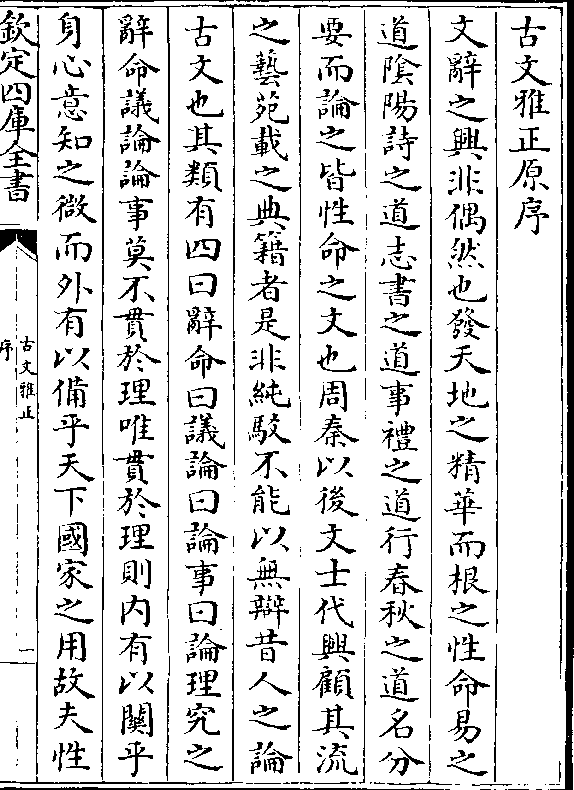 古文雅正原序
文辭之興非偶然也發天地之精華而根之性命易之
道隂陽詩之道志書之道事禮之道行春秋之道名分
要而論之皆性命之文也周秦以後文士代興顧其流
之藝苑載之典籍者是非純駁不能以無辯昔人之論
古文也其類有四曰辭命曰議論曰論事曰論理究之
辭命議論論事莫不貫於理唯貫於理則内有以關乎
身心意知之微而外有以備乎天下國家之用故夫性
欽定四庫全書
古文雅正
序
一